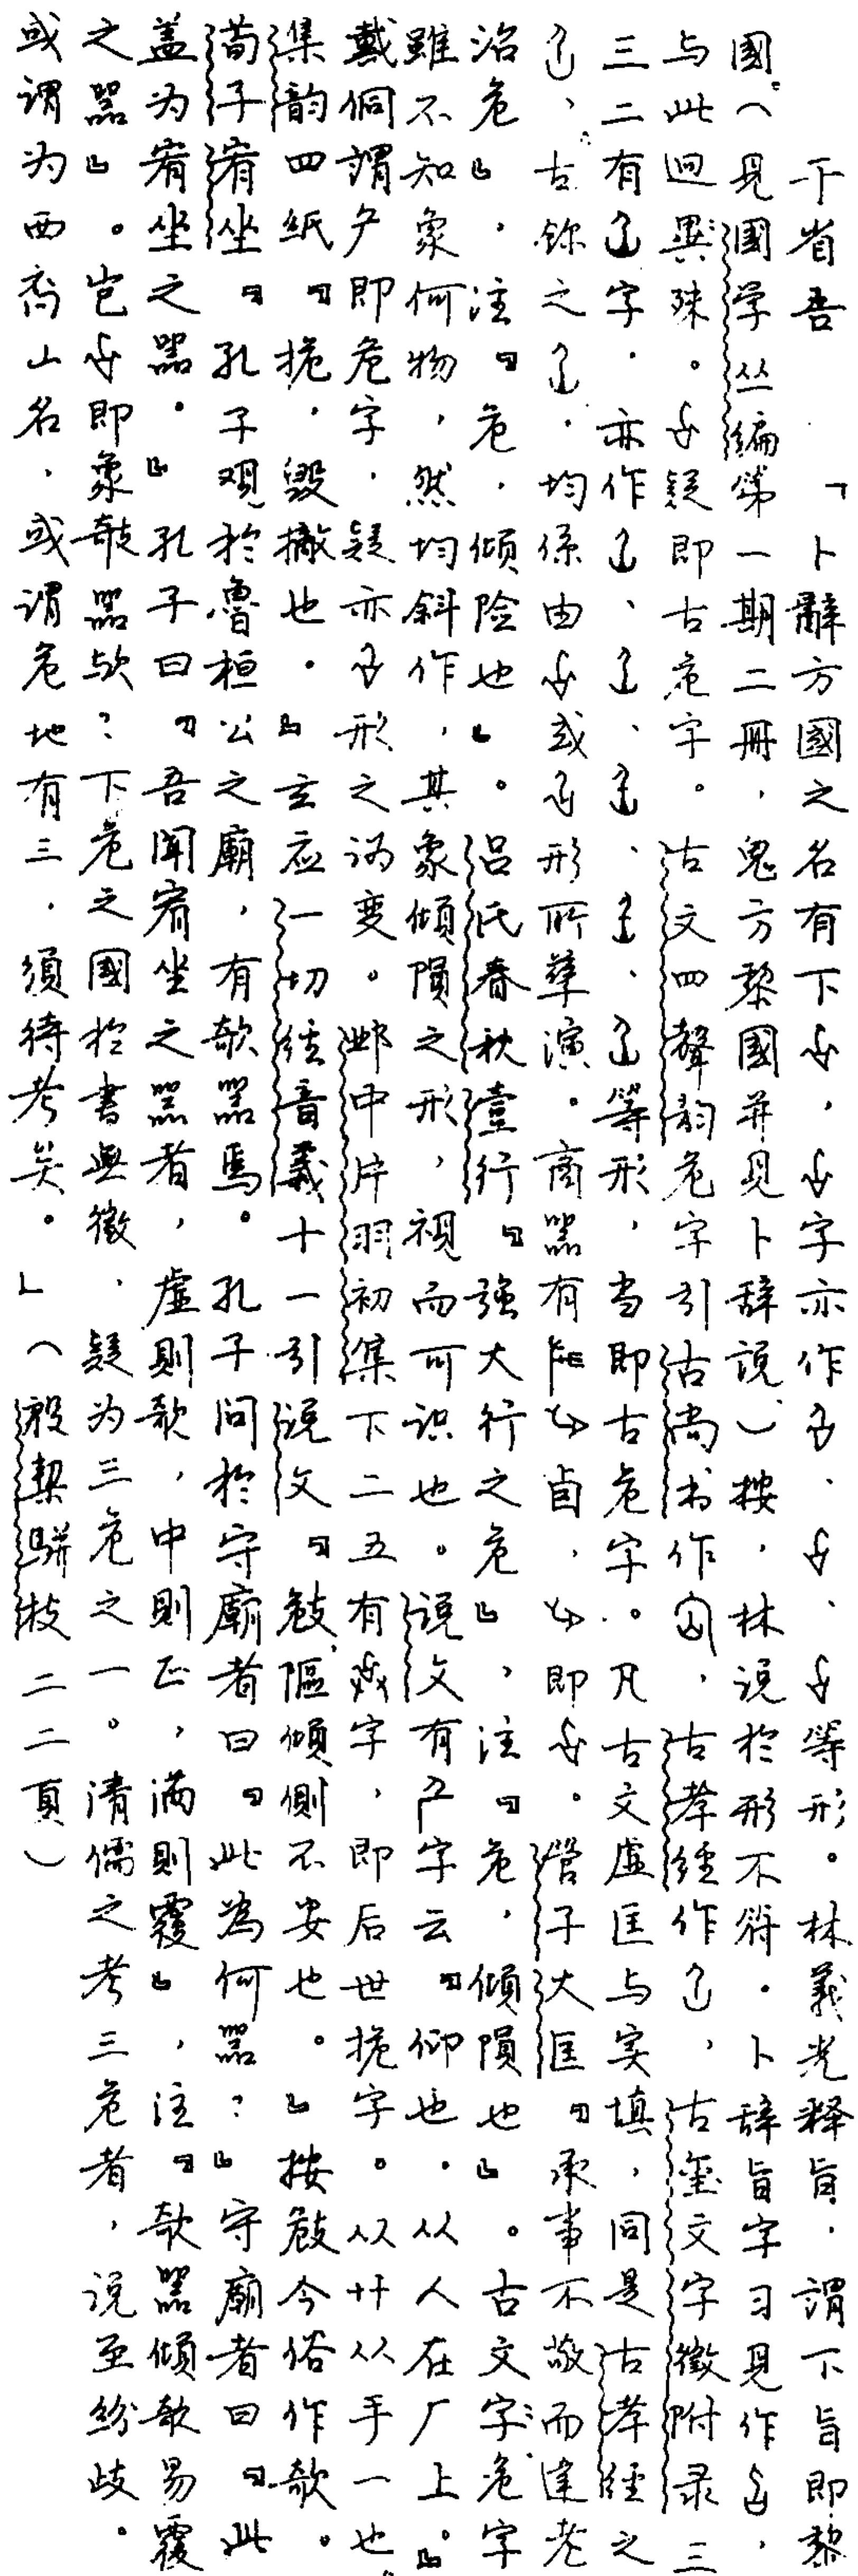 于省吾 「卜辭方國之名有下，字亦作、、等形。林義光释旨，謂下旨即黎
國。（見國学丛编第一期二冊，鬼方黎國并見卜辞説）按，林说於形不符。卜辞旨字习見作，
与此迥異殊。疑即古危字。古文四聲韵危字引古尚书作，古孝经作，古璽文字徵附录三
三二有字，亦作、、、、等形，当即古危字。凡古文虚匡与实填，同是古孝经之
，古鉨之，均係由或形所孳演。商器有卣，即。管子大匡『承事不敬而違老
治危』，注『危，傾险也』。吕氏春秋壹行『強大行之危』，注『危，傾隕也』。古文字危字
雖不知象何物，然均斜作，其象傾隕之形，視而可识也。说文有字云『仰也，从人在厂上。』
戴侗謂即危字，疑亦形之讹变。邺中片羽初集下二五有字，即后世桅字。从廾从手一也。
集韵四纸『桅，毁撤也。』玄应一切经音義十一引说文『攲隁傾側不安也。』按攲今俗作欹。
荀子宥坐『孔子观於魯桓公之廟，有欹器焉。孔子问於守廟者曰『此為何器？』守廟者曰『此
盖为宥坐之器。』孔子曰『吾聞宥坐之器者，虚則欹，中則正，满則覆』，注『欹器傾欹易覆
之器』。岂即象攲器欤？下危之國於書無徵，疑为三危之一。清儒之考三危者，说至纷歧。
或谓为西裔山名，或谓危地有三，须待考矣。」（殷契駢枝二二頁）